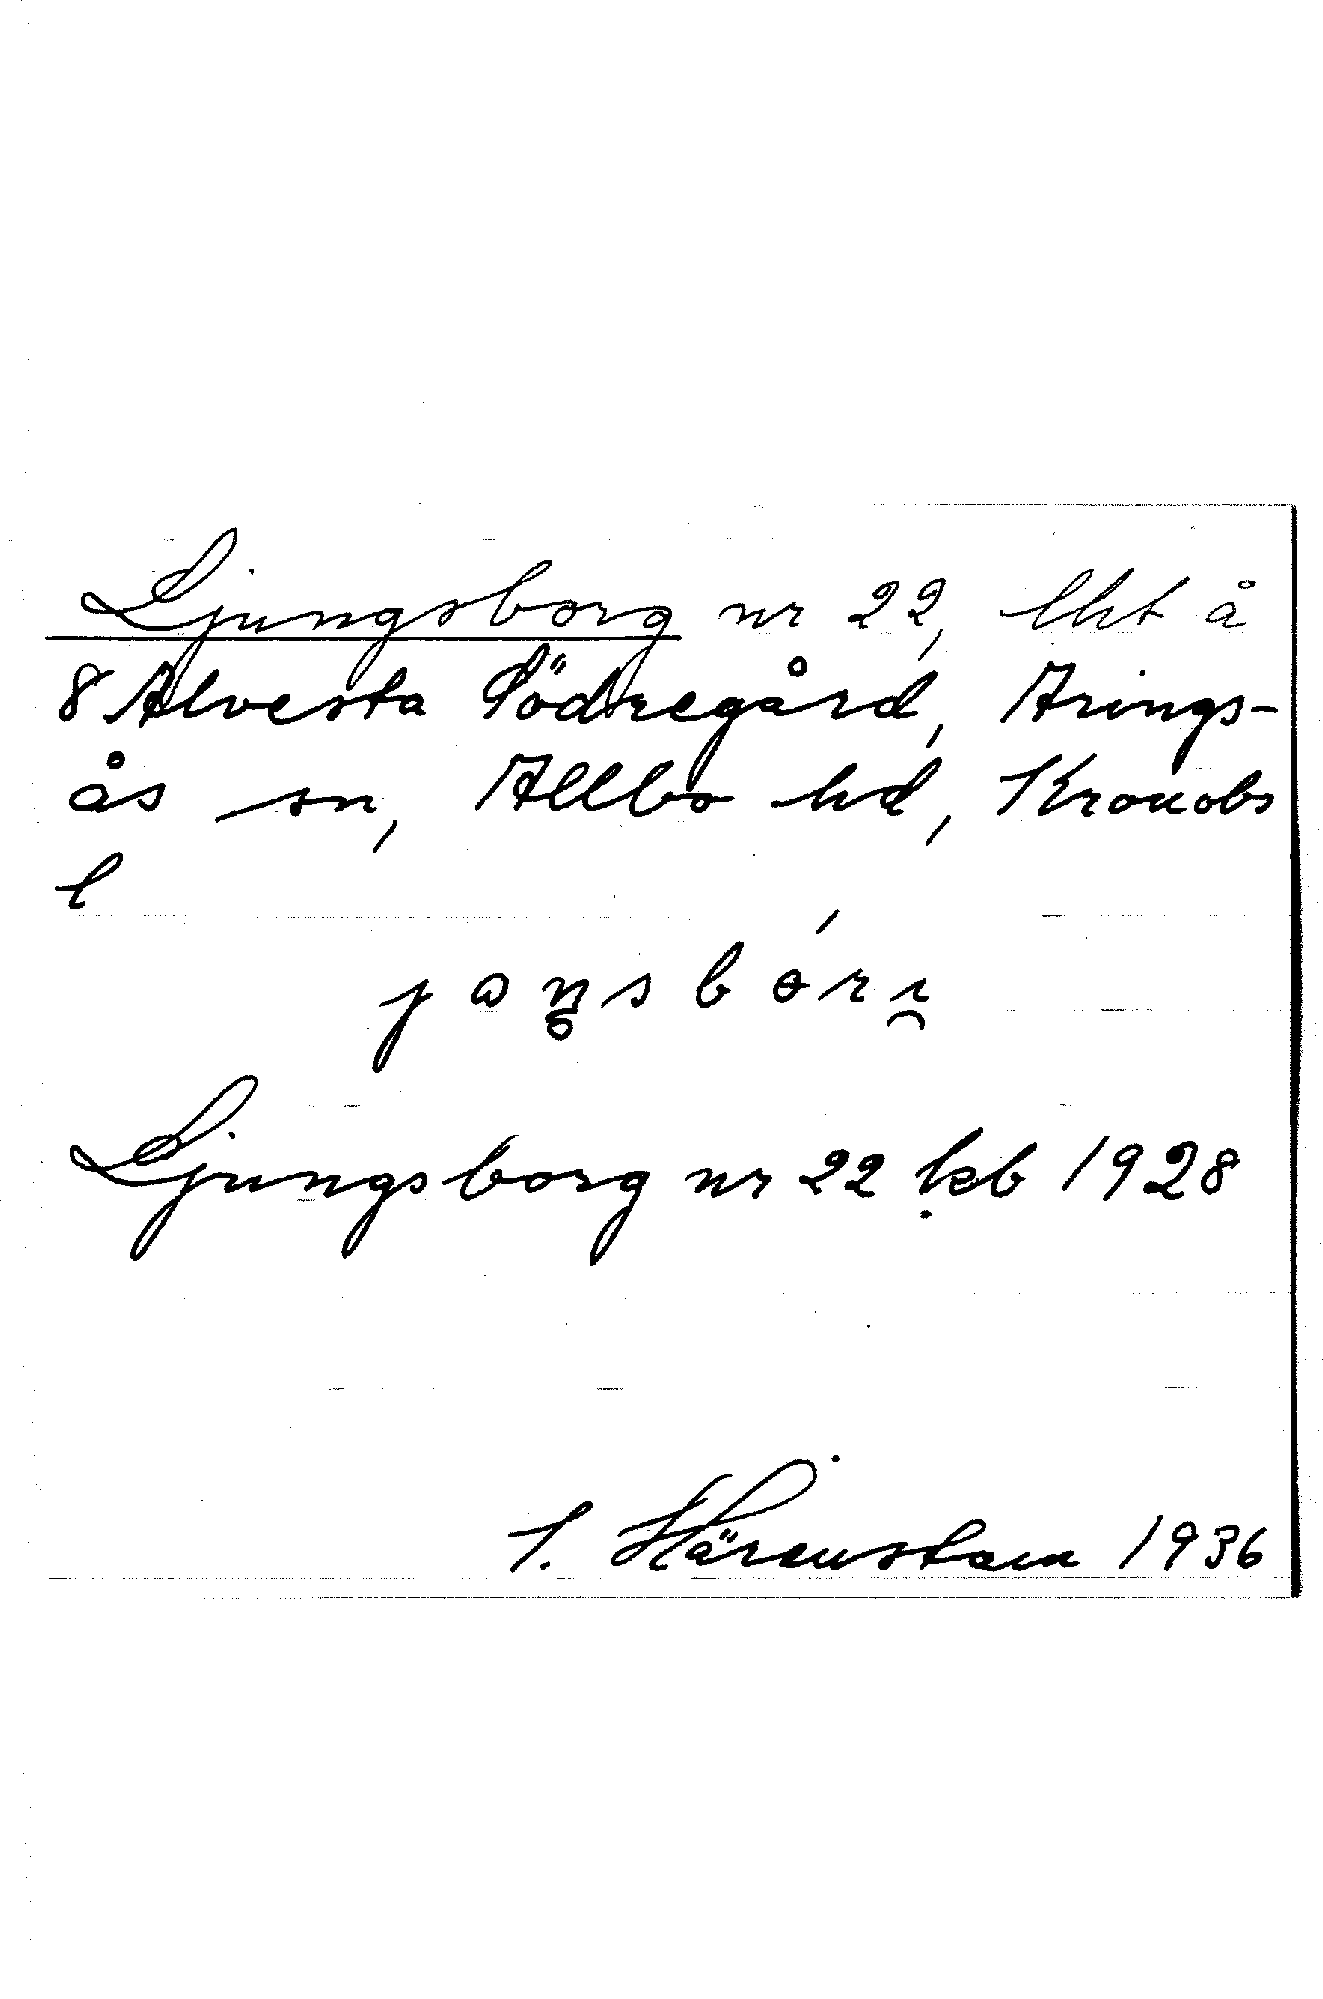 Ljungsborg nr 22, lht å
8 Alvesta Södregård, Arings-
ås sn, Allbo hd, Kronobs
l
Ljungsborg nr 22 kb 1928
S. Härenstam 1936